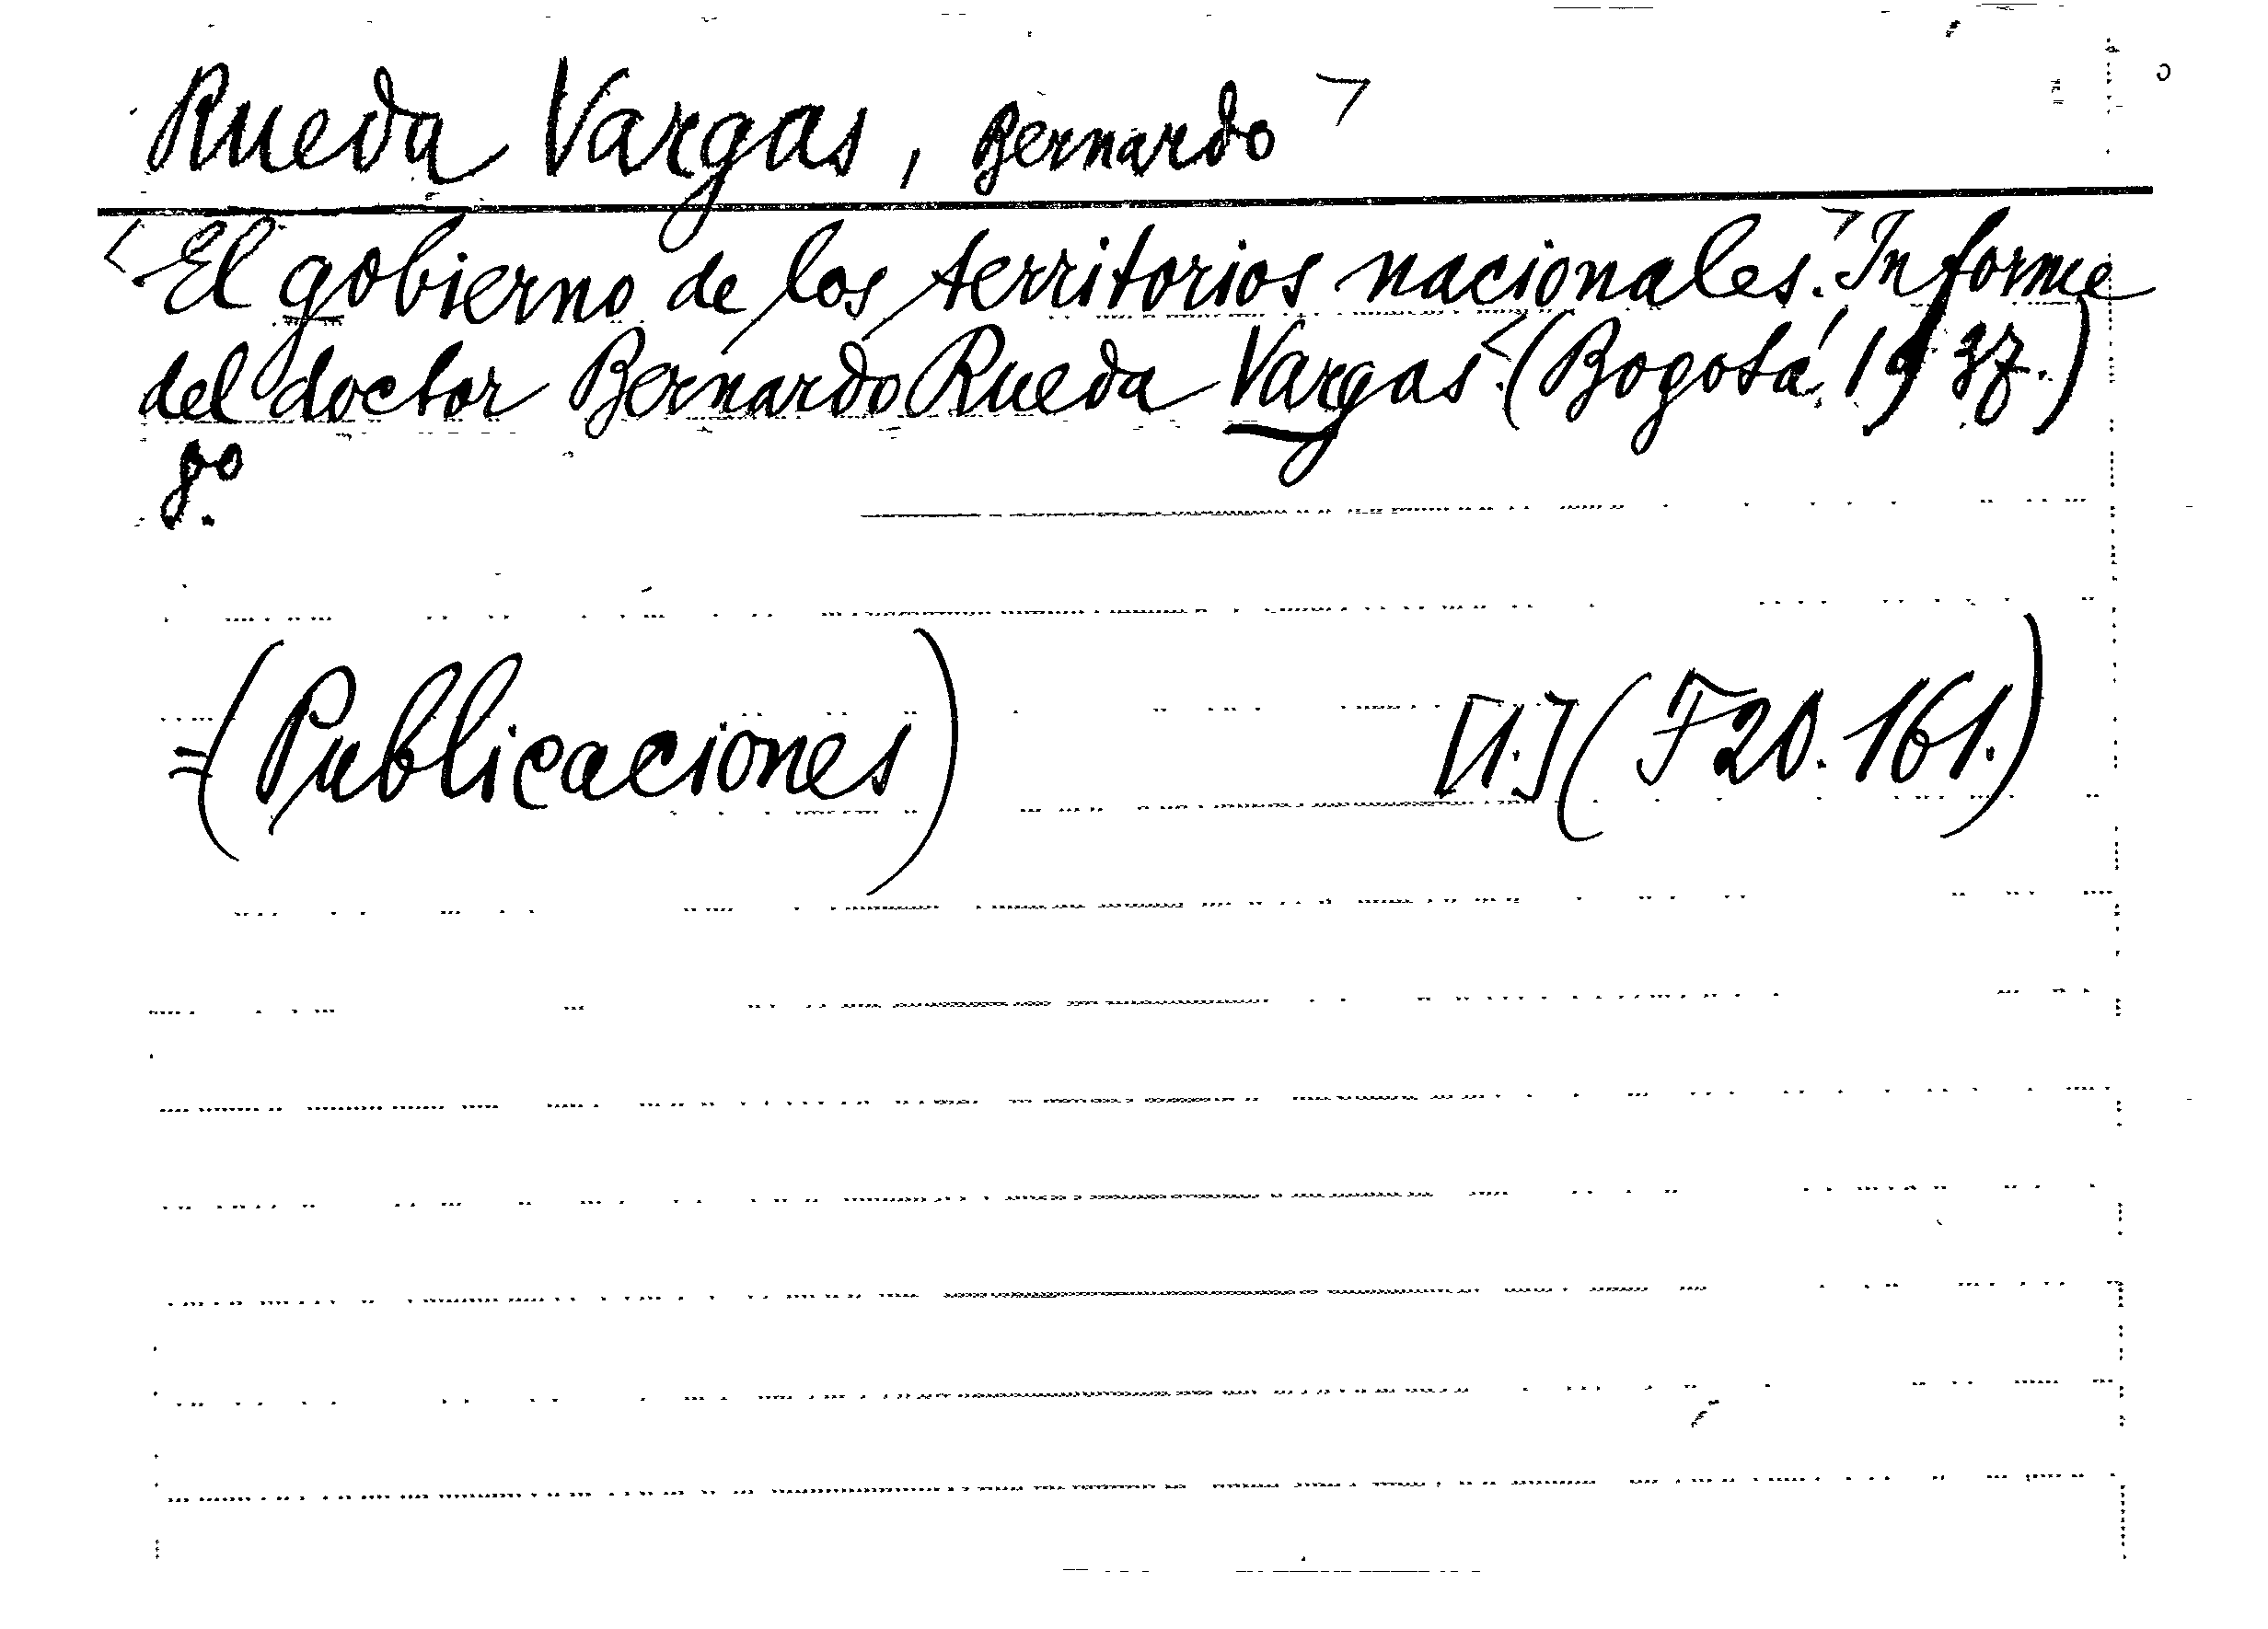 Rueda Vargas, Bernardo
El gobierno de los territorios nacionales. Informe
del doctor Bernardo Rueda Vargas. (Bogotá, 1937.)
8º.
=(Publicaciones) [1.] (F20.161.)